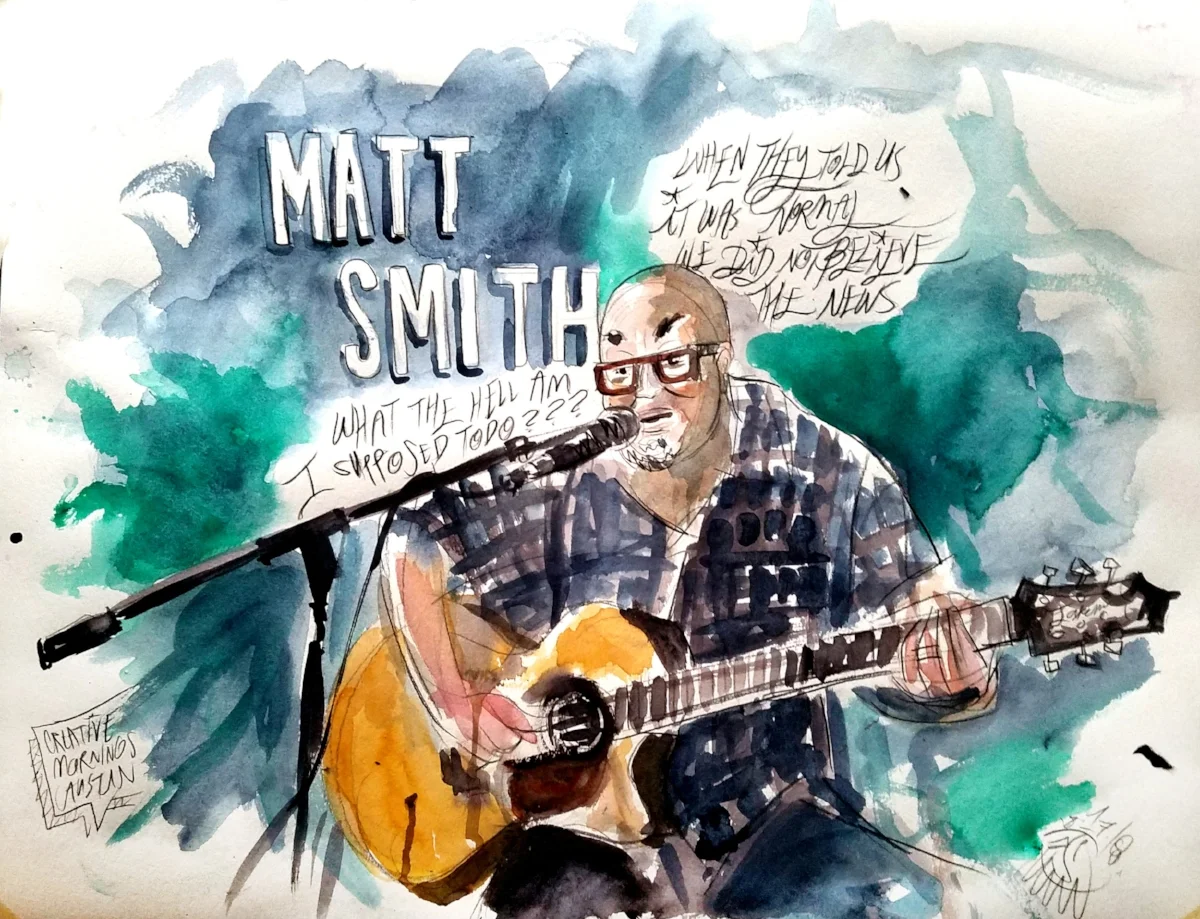 MATT
SMITH
WHEN THEY TOLD US
IT WAS NORMAL
WE DID NOT BELIEVE
THE NEWS
WHAT THE HELL AM
I SUPPOSED TO DO???
CREATIVE
MORNINGS
AUSTIN